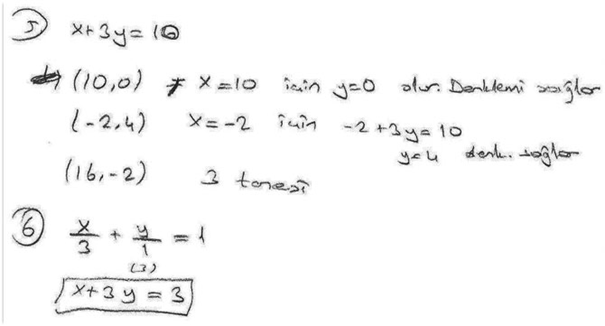 5) x+3y=10
(10,0) x=10 için y=0 olur. Denklemi sağlar
(-2,4) x=-2 için -2+3y=10
y=4 denk. sağlar
(16,-2) 3 tanesi
6 x/3 + y/1 = 1
(3)
x+3y=3